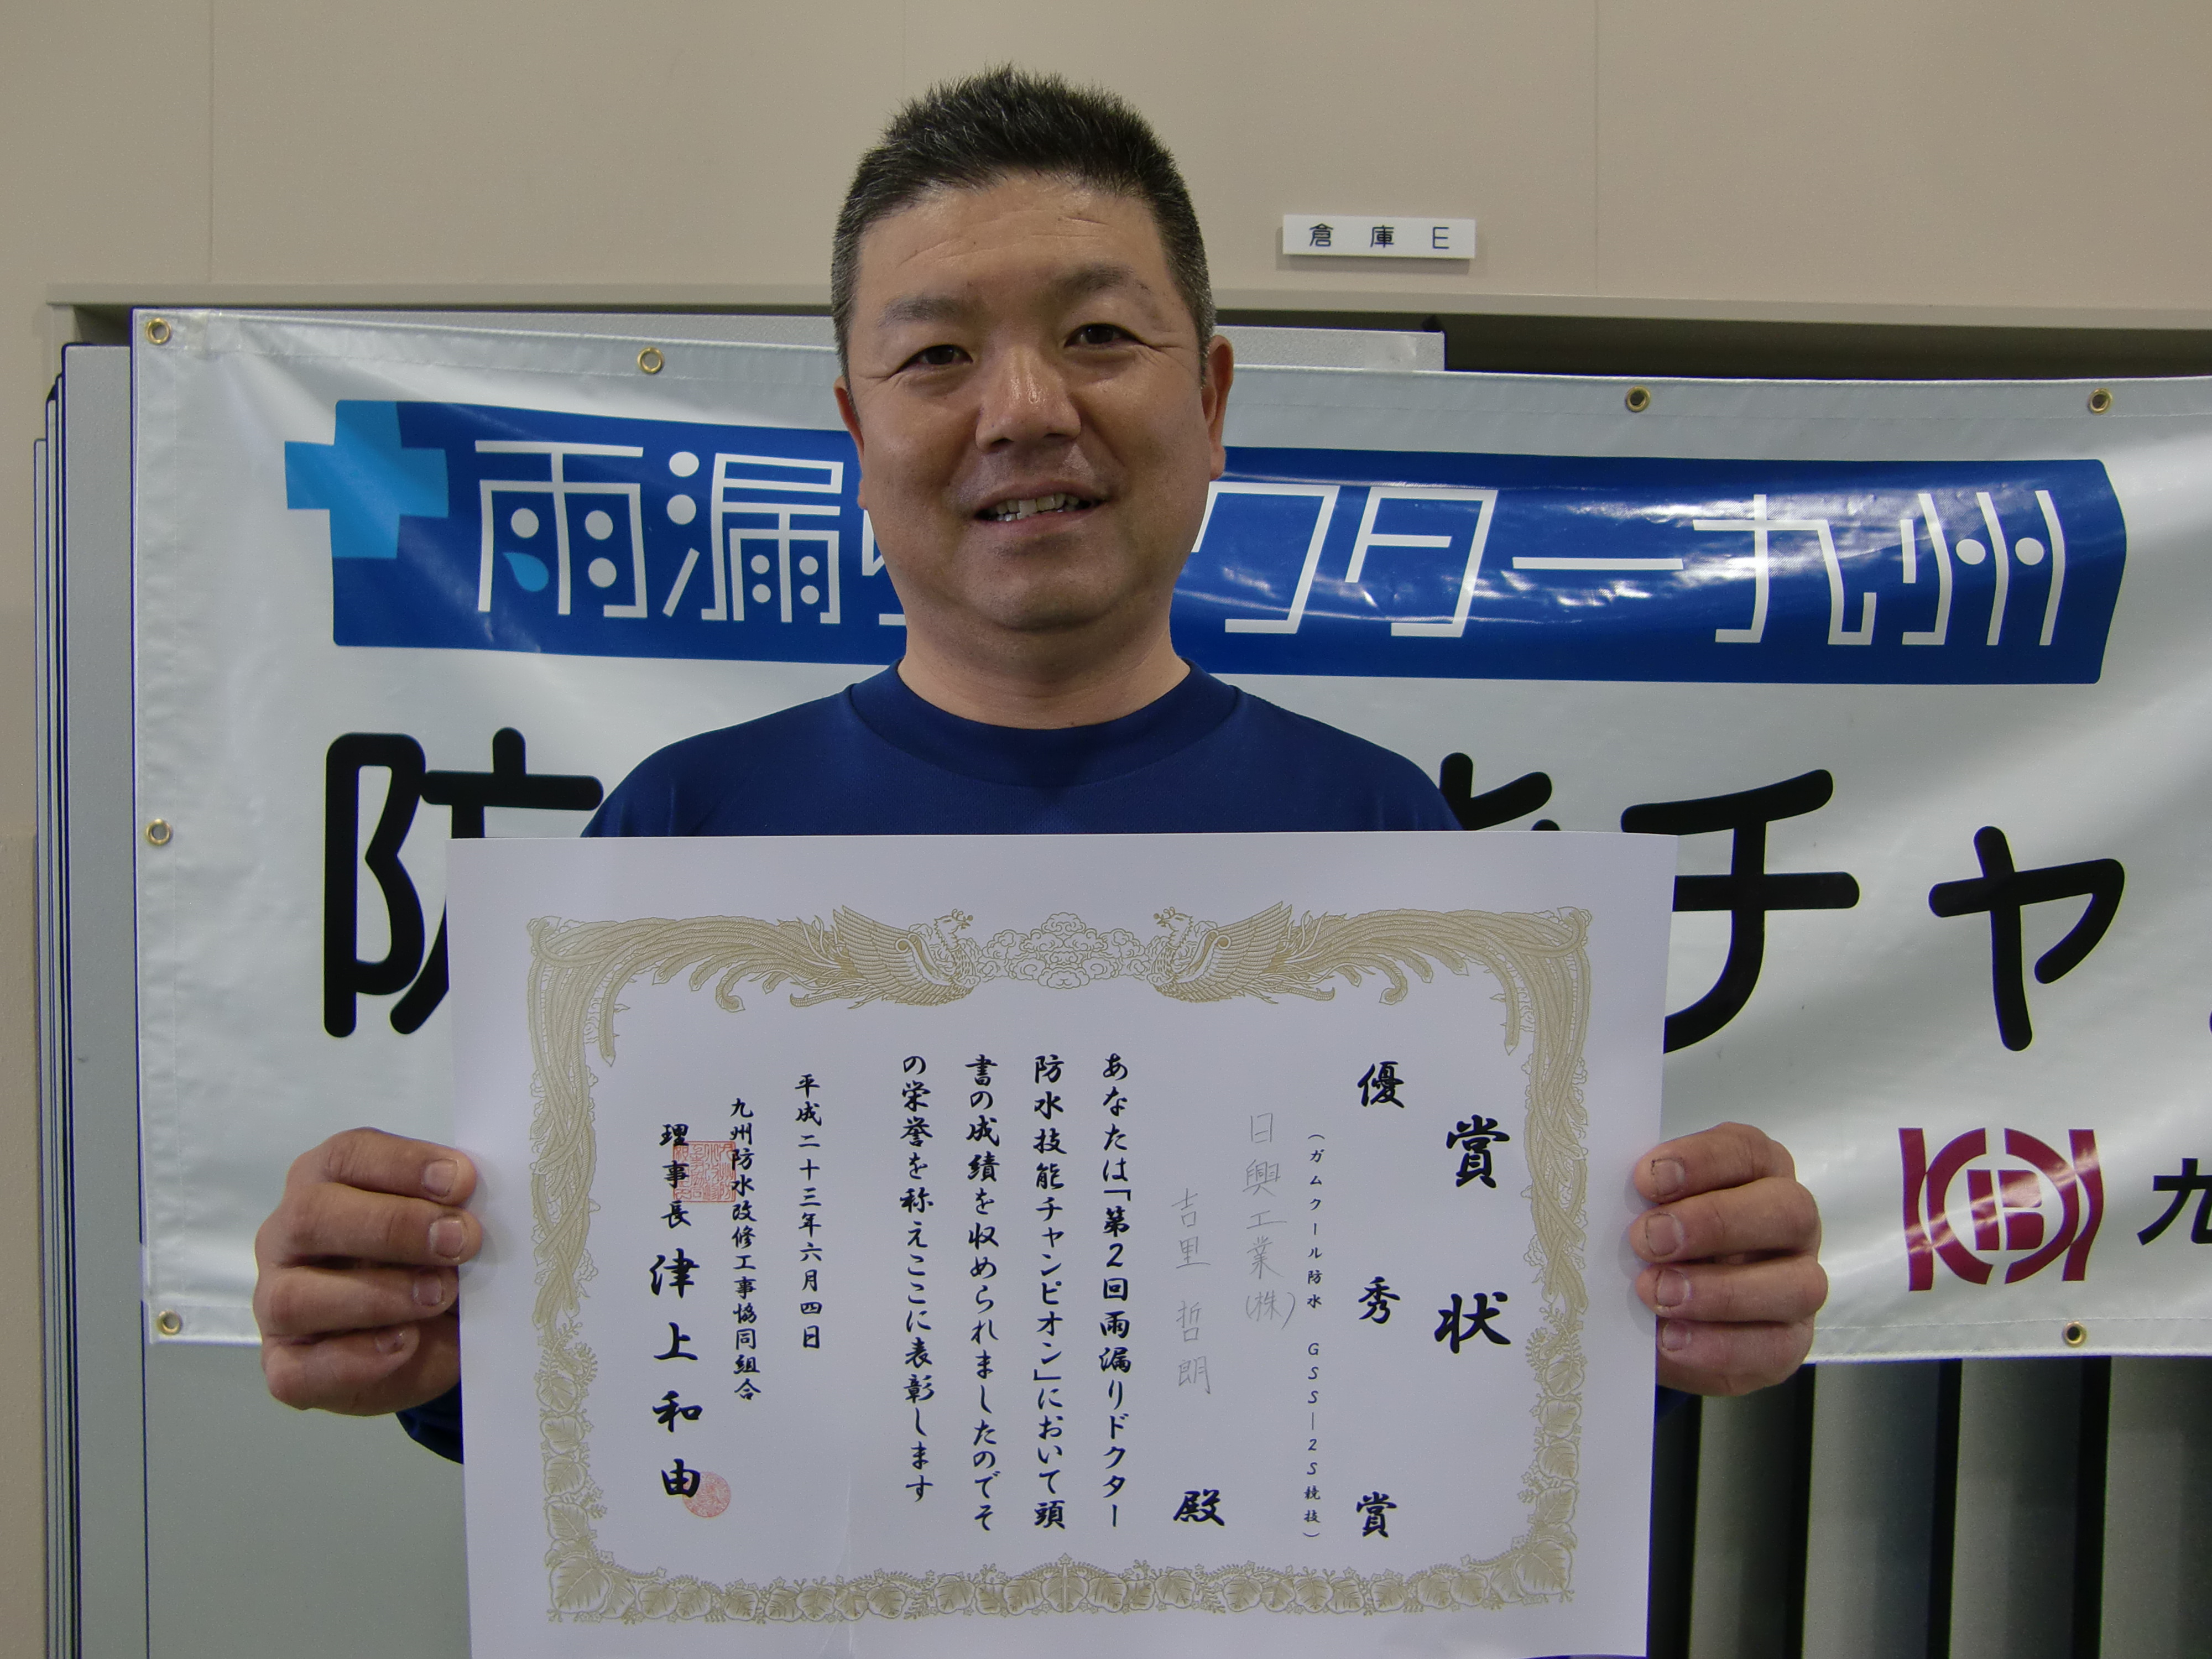 倉庫E
雨漏りクター九州
防能チャ
九
賞状
優秀賞
(ガムクール防水 GSS-2S競技)
日興工業(株)
吉里 哲朗 殿
あなたは「第2回雨漏りドクター
防水技能チャンピオン」において頭
書の成績を収められましたのでそ
の栄誉を称えここに表彰します
平成二十三年六月四日
九州防水改修工事協同組合
理事長 津上和由